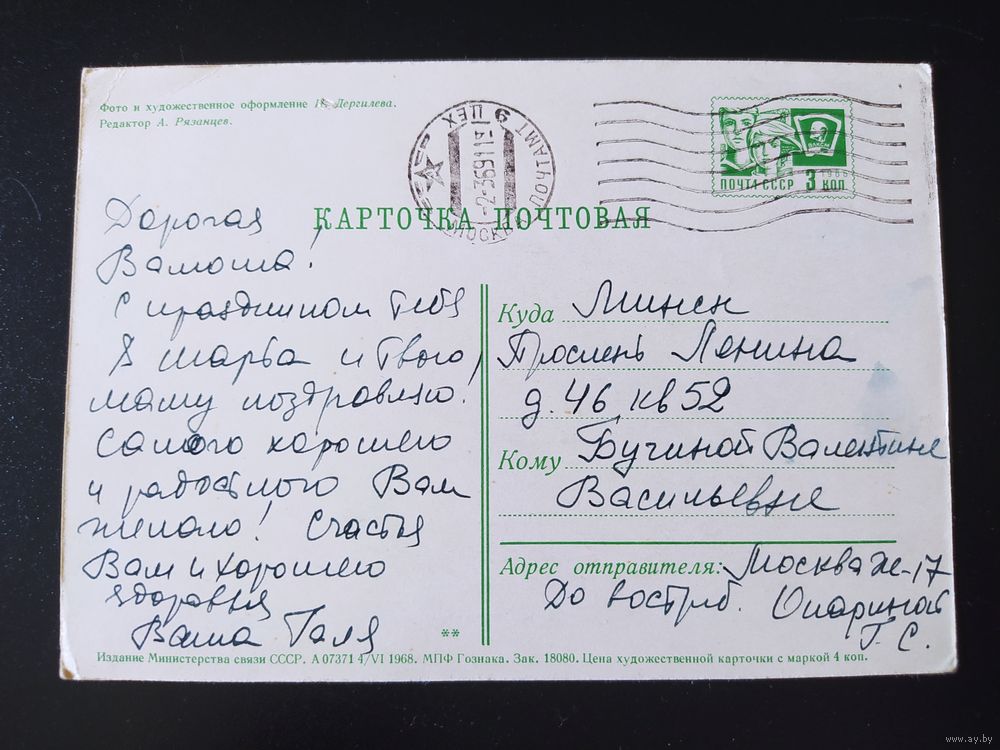 Фото и художественное оформление Дергилева.
Редактор А. Рязанцев.
МОСКВА ПОЧТАМТ 9 ЦЕХ
-2-36911
ВЛКСМ
1966
ПОЧТА СССР 3 КОП.
КАРТОЧКА ПОЧТОВАЯ
Дорогая
Вамоша!
С праздником тебя
8 марта и твою
маму поздравляю!
Самого хорошего
и радостного Вам
желаю! Счастья
Вам и хорошего
здоровья
Ваша Галя
Куда Минск
Проспект Ленина
д. 46 кв 52
Кому Бучиной Валентине
Васильевне
Адрес отправителя: Москва Ж-17
До востреб. Опариной
Г. С.
**
Издание Министерства связи СССР. А 07371 4/VI 1968. МПФ Гознака. Зак. 18080. Цена художественной карточки с маркой 4 коп.
www.ay.by